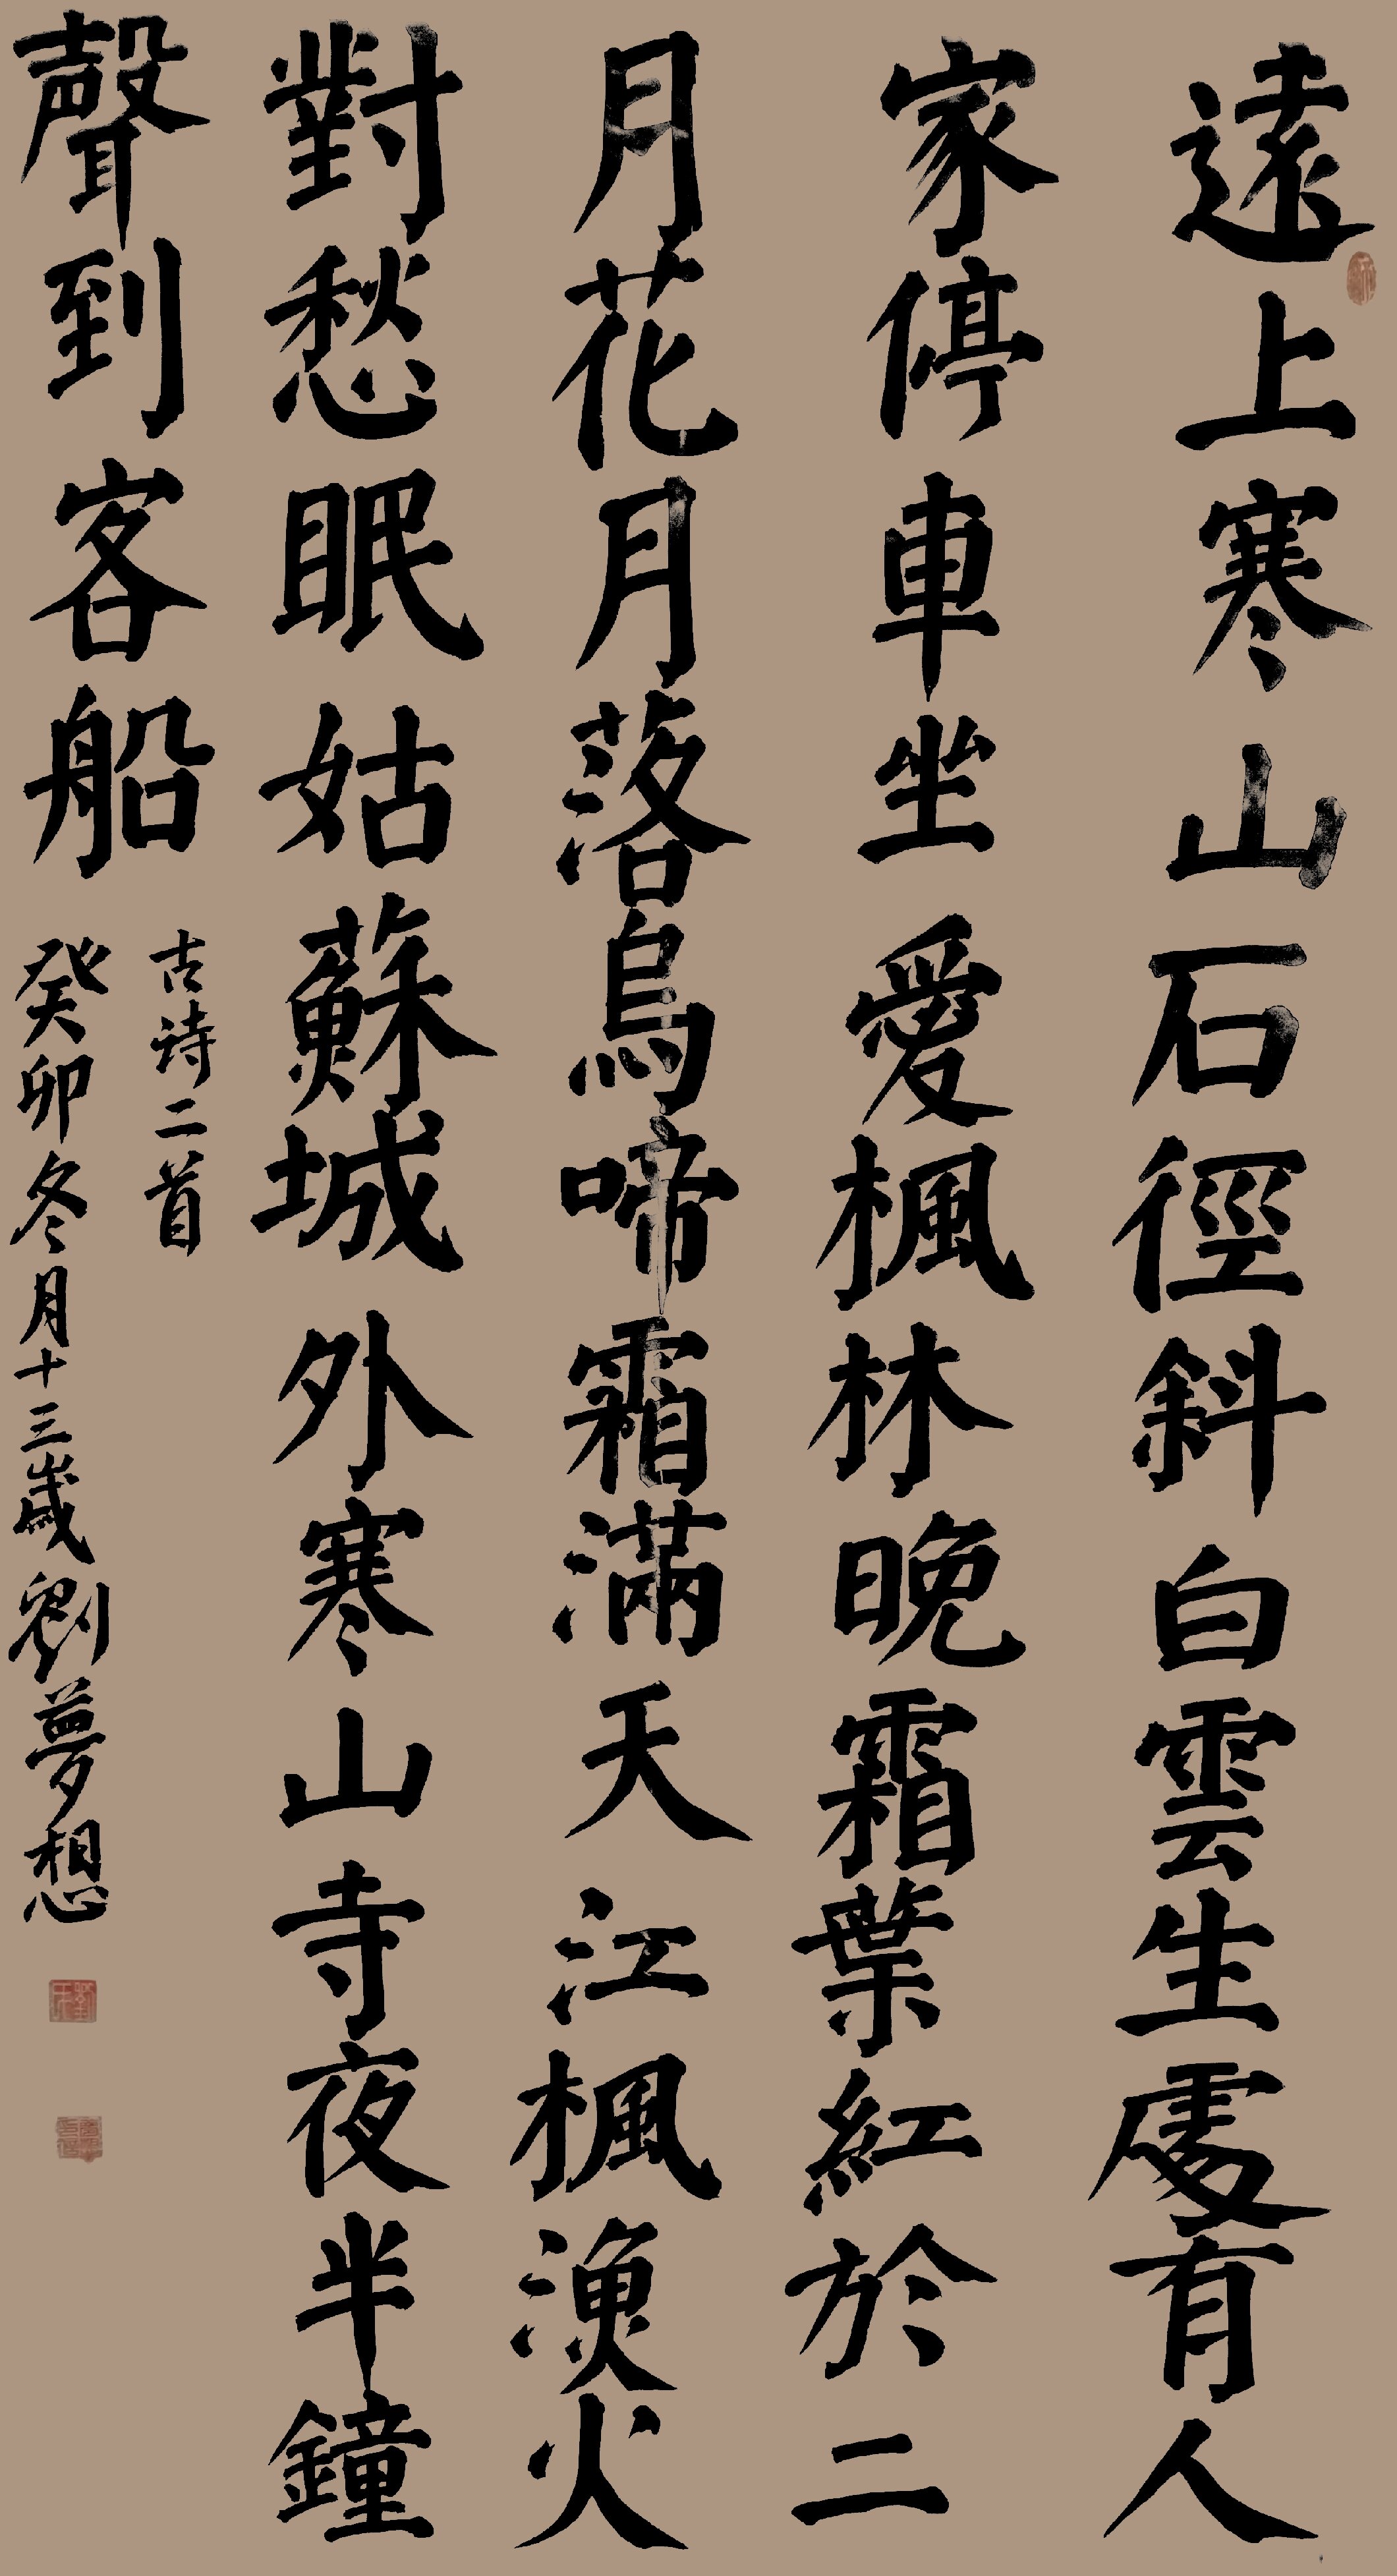 遠上寒山石徑斜白雲生處有人
家停車坐愛楓林晚霜葉紅於二
月花月落烏啼霜滿天江楓漁火
對愁眠姑蘇城外寒山寺夜半鐘
聲到客船
古诗二首
癸卯冬月十三歲劉夢想